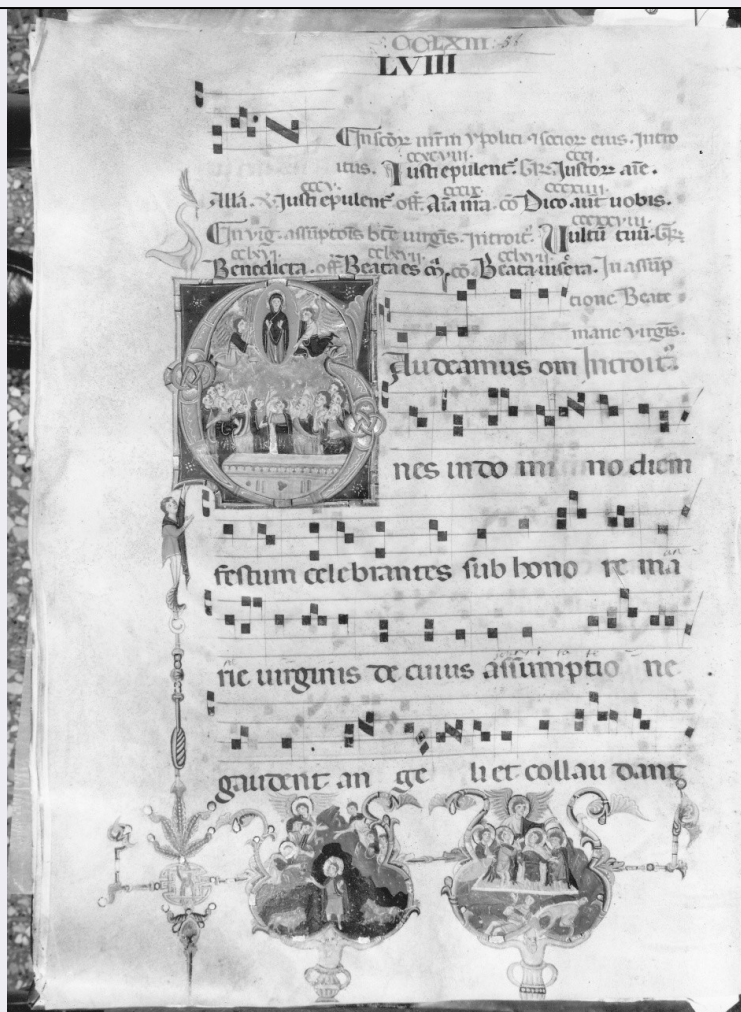 CCLXIII 58
LVIII
In scōꝝ mr̄m ypoliti ⁊ socioꝝ eius. Intro
ccxcviii. ccci.
itus. Iusti epulent᷑. Gr̄. Iustoꝝ aīe.
cccv. cccix. cccxiiii.
Allā. Iusti epulent᷑ off̄. Aīa nr̄a. cō Dico aut̄ uobis.
In viḡ. assūptiōis btē uirgīs. Introit᷑. Uultū tuū. Gr̄.
cclxvi. cclxvii. cclxvii.
Benedicta. off̄. Beata es cō. Beata uiscera. In assūp
tione Beate
marie virgīs.
Audeamus om Introit᷑
nes in do mi no diem
festum celebrantes sub hono re ma
rie uirginis de cuius assumptio ne
gaudent an ge li et collau dant